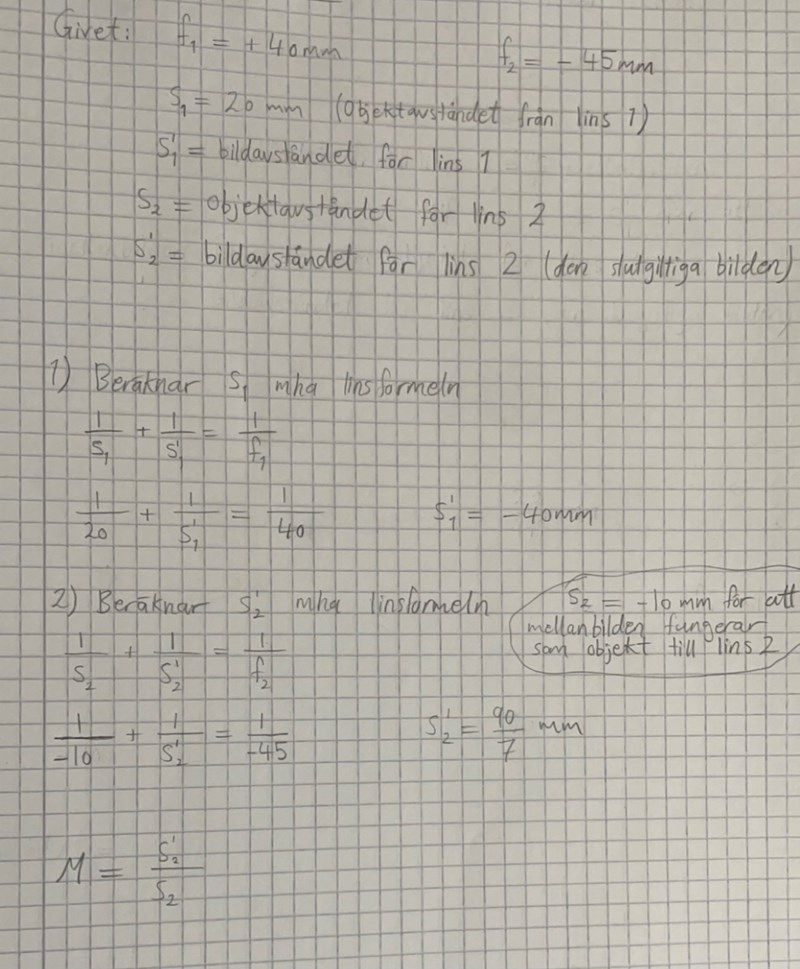 Givet: f₁ = +40mm f₂ = -45mm
S₁ = 20 mm (Objektavståndet från lins 1)
S₁' = bildavståndet för lins 1
S₂ = Objektavståndet för lins 2
S₂' = bildavståndet för lins 2 (den slutgiltiga bilden)
1) Beräknar S₁ mha linsformeln
1/S₁ + 1/S₁' = 1/f₁
1/20 + 1/S₁' = 1/40 S₁' = -40mm
2) Beräknar S₂' mha linsformeln
S₂ = -10 mm för att
mellanbilden fungerar
som objekt till lins 2
1/S₂ + 1/S₂' = 1/f₂
1/-10 + 1/S₂' = 1/-45 S₂' = 90/7 mm
M = S₂'/S₂